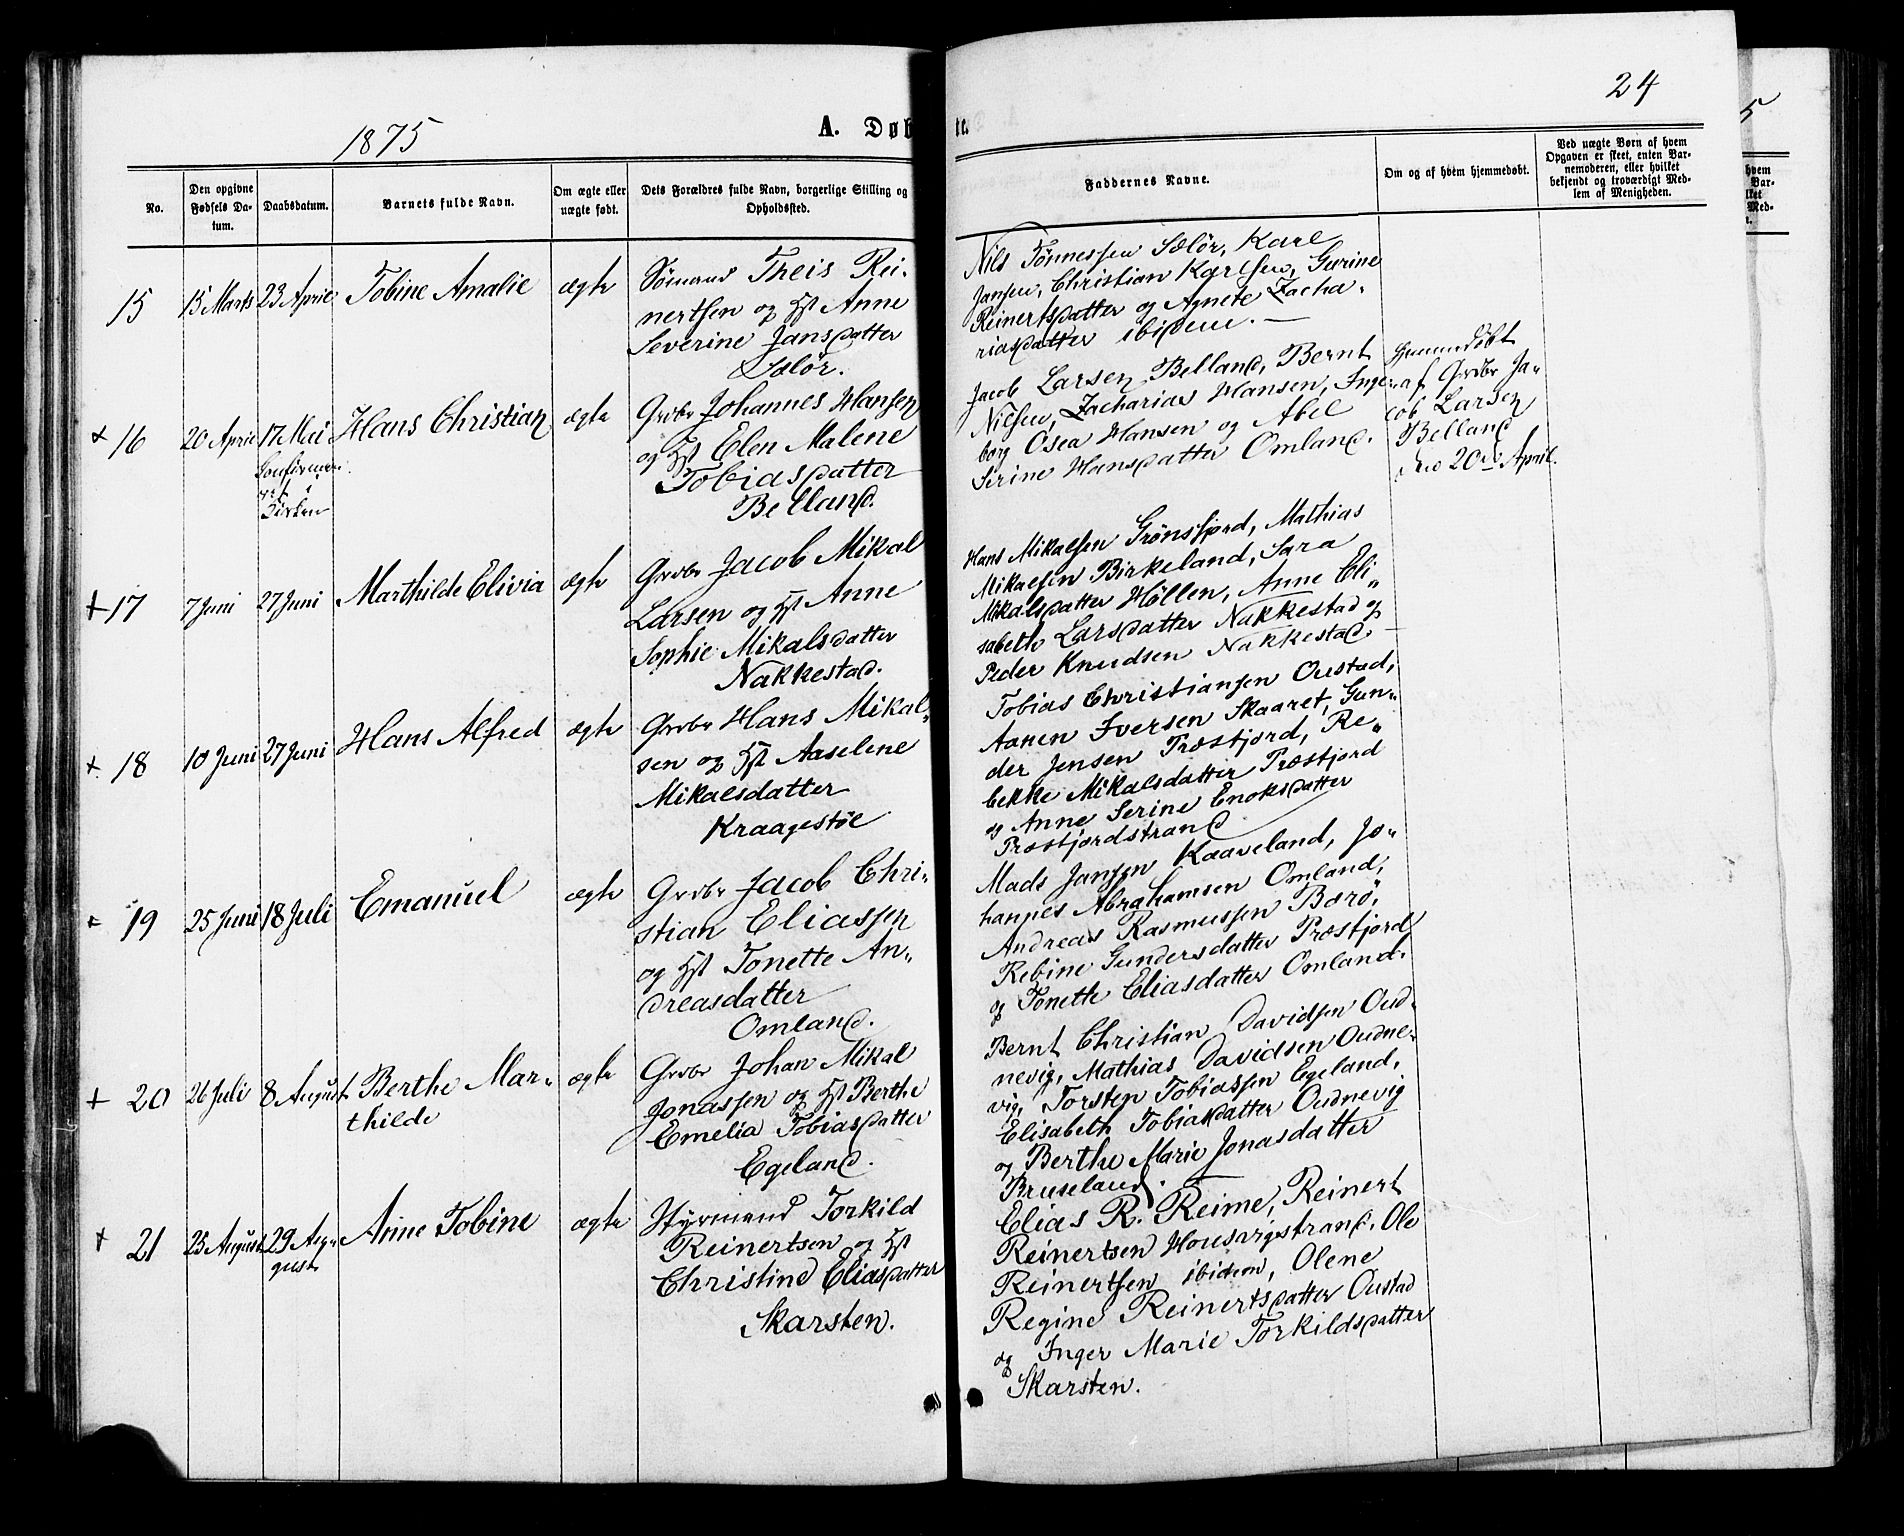 1875
A. Døb
No.
Den opgivne
Fødsels Da-
tum.
Daabsdatum.
Barnets fulde Navn.
Om ægte eller
uægte født.
Dets Forældres fulde Navn, borgerlige Stilling og
Opholdssted.
15
15 Marts
23 April
Tobine Amalie
ægte
Sømand Theis Rei-
nertsen og Hst Anne
Severine Jansdatter
Sælør.
16
20 April
17 Mai
Confirmer.
i
Kirken
Hans Christian
ægte
Grdbr Johannes Hansen
og Hst Elen Malene
Tobiasdatter
Belland.
17
7 Juni
27 Juni
Marthilde Elivia
ægte
Grdbr Jacob Mikal
Larsen og Hst Anne
Sophie Mikalsdatter
Nakkestad.
18
10 Juni
27 Juni
Hans Alfred
ægte
Grdbr Hans Mikal-
sen og Hst Aaselene
Mikalsdatter
Kraagestøe
19
25 Juni
18 Juli
Emanuel
ægte
Grdbr Jacob Chri-
stian Eliassen
og Hst Tonette An-
dreasdatter
Omland.
20
26 Juli
8 August
Berthe Mar-
thilde
ægte
Grdbr Johan Mikal
Jonassen og Hst Berthe
Emelia Tobiasdatter
Egeland.
21
25 August
29 Au-
gust
Anne Tobine
ægte
Styrmand Torkild
Reinertsen og Hst
Christine Eliasdatter
Skarsten.
24
te.
Faddernes Navne.
Om og af hvem hjemmedøbt.
Ved uægte Børn af hvem
Opgaven er skeet, enten Bar-
nemoderen, eller hvilket
bekjendt og troværdigt Med-
lem af Menigheden.
Nils Tønnessen Sælør, Karl
Jansen, Christian Karlsen, Gurine
Reinertsdatter og Agnete Zacha-
riasdatter ibidem.
Jacob Larsen Belland, Bernt
Nilsen, Zacharias Hansen, Inge-
borg Osea Hansen og Abel
Serine Hansdatter Omland.
Hjemmedøbt
af Grdbr Ja-
cob Larsen
Belland
den 20de April.
Hans Mikalsen Grønsfjord, Mathias
Mikalsen Birkeland, Sara
Mikalsdatter Høllen, Anne Eli-
sabeth Larsdatter Nakkestad og
Peder Knudsen Nakkestad.
Tobias Christiansen Oustad,
Aanen Iversen Skaaret, Gun-
der Jensen Præstfjord, Re-
bekke Mikalsdatter Præstfjord
og Anne Serine Enoksdatter
Præstfjordstrand
Mads Jansen Kaaveland, Jo-
hannes Abrahamsen Omland,
Andreas Rasmussen Barø,
Rebine Gundersdatter Præstfjord
og Tonette Eliasdatter Omland.
Bernt Christian Davidsen Oud-
nevig, Mathias Davidsen Oudne-
vig, Torsten Tobiassen Egeland,
Elisabeth Tobiasdatter Oudnevig
og Berthe Marie Jonasdatter
Bruseland.
Elias R. Reime, Reinert
Reinertsen Housvigstrand, Ole
Reinertsen ibidem, Olene
Regine Reinertsdatter Oustad
og Inger Marie Torkildsdatter
Skarsten.
5
hvem
Var-
lket
Med-
t.